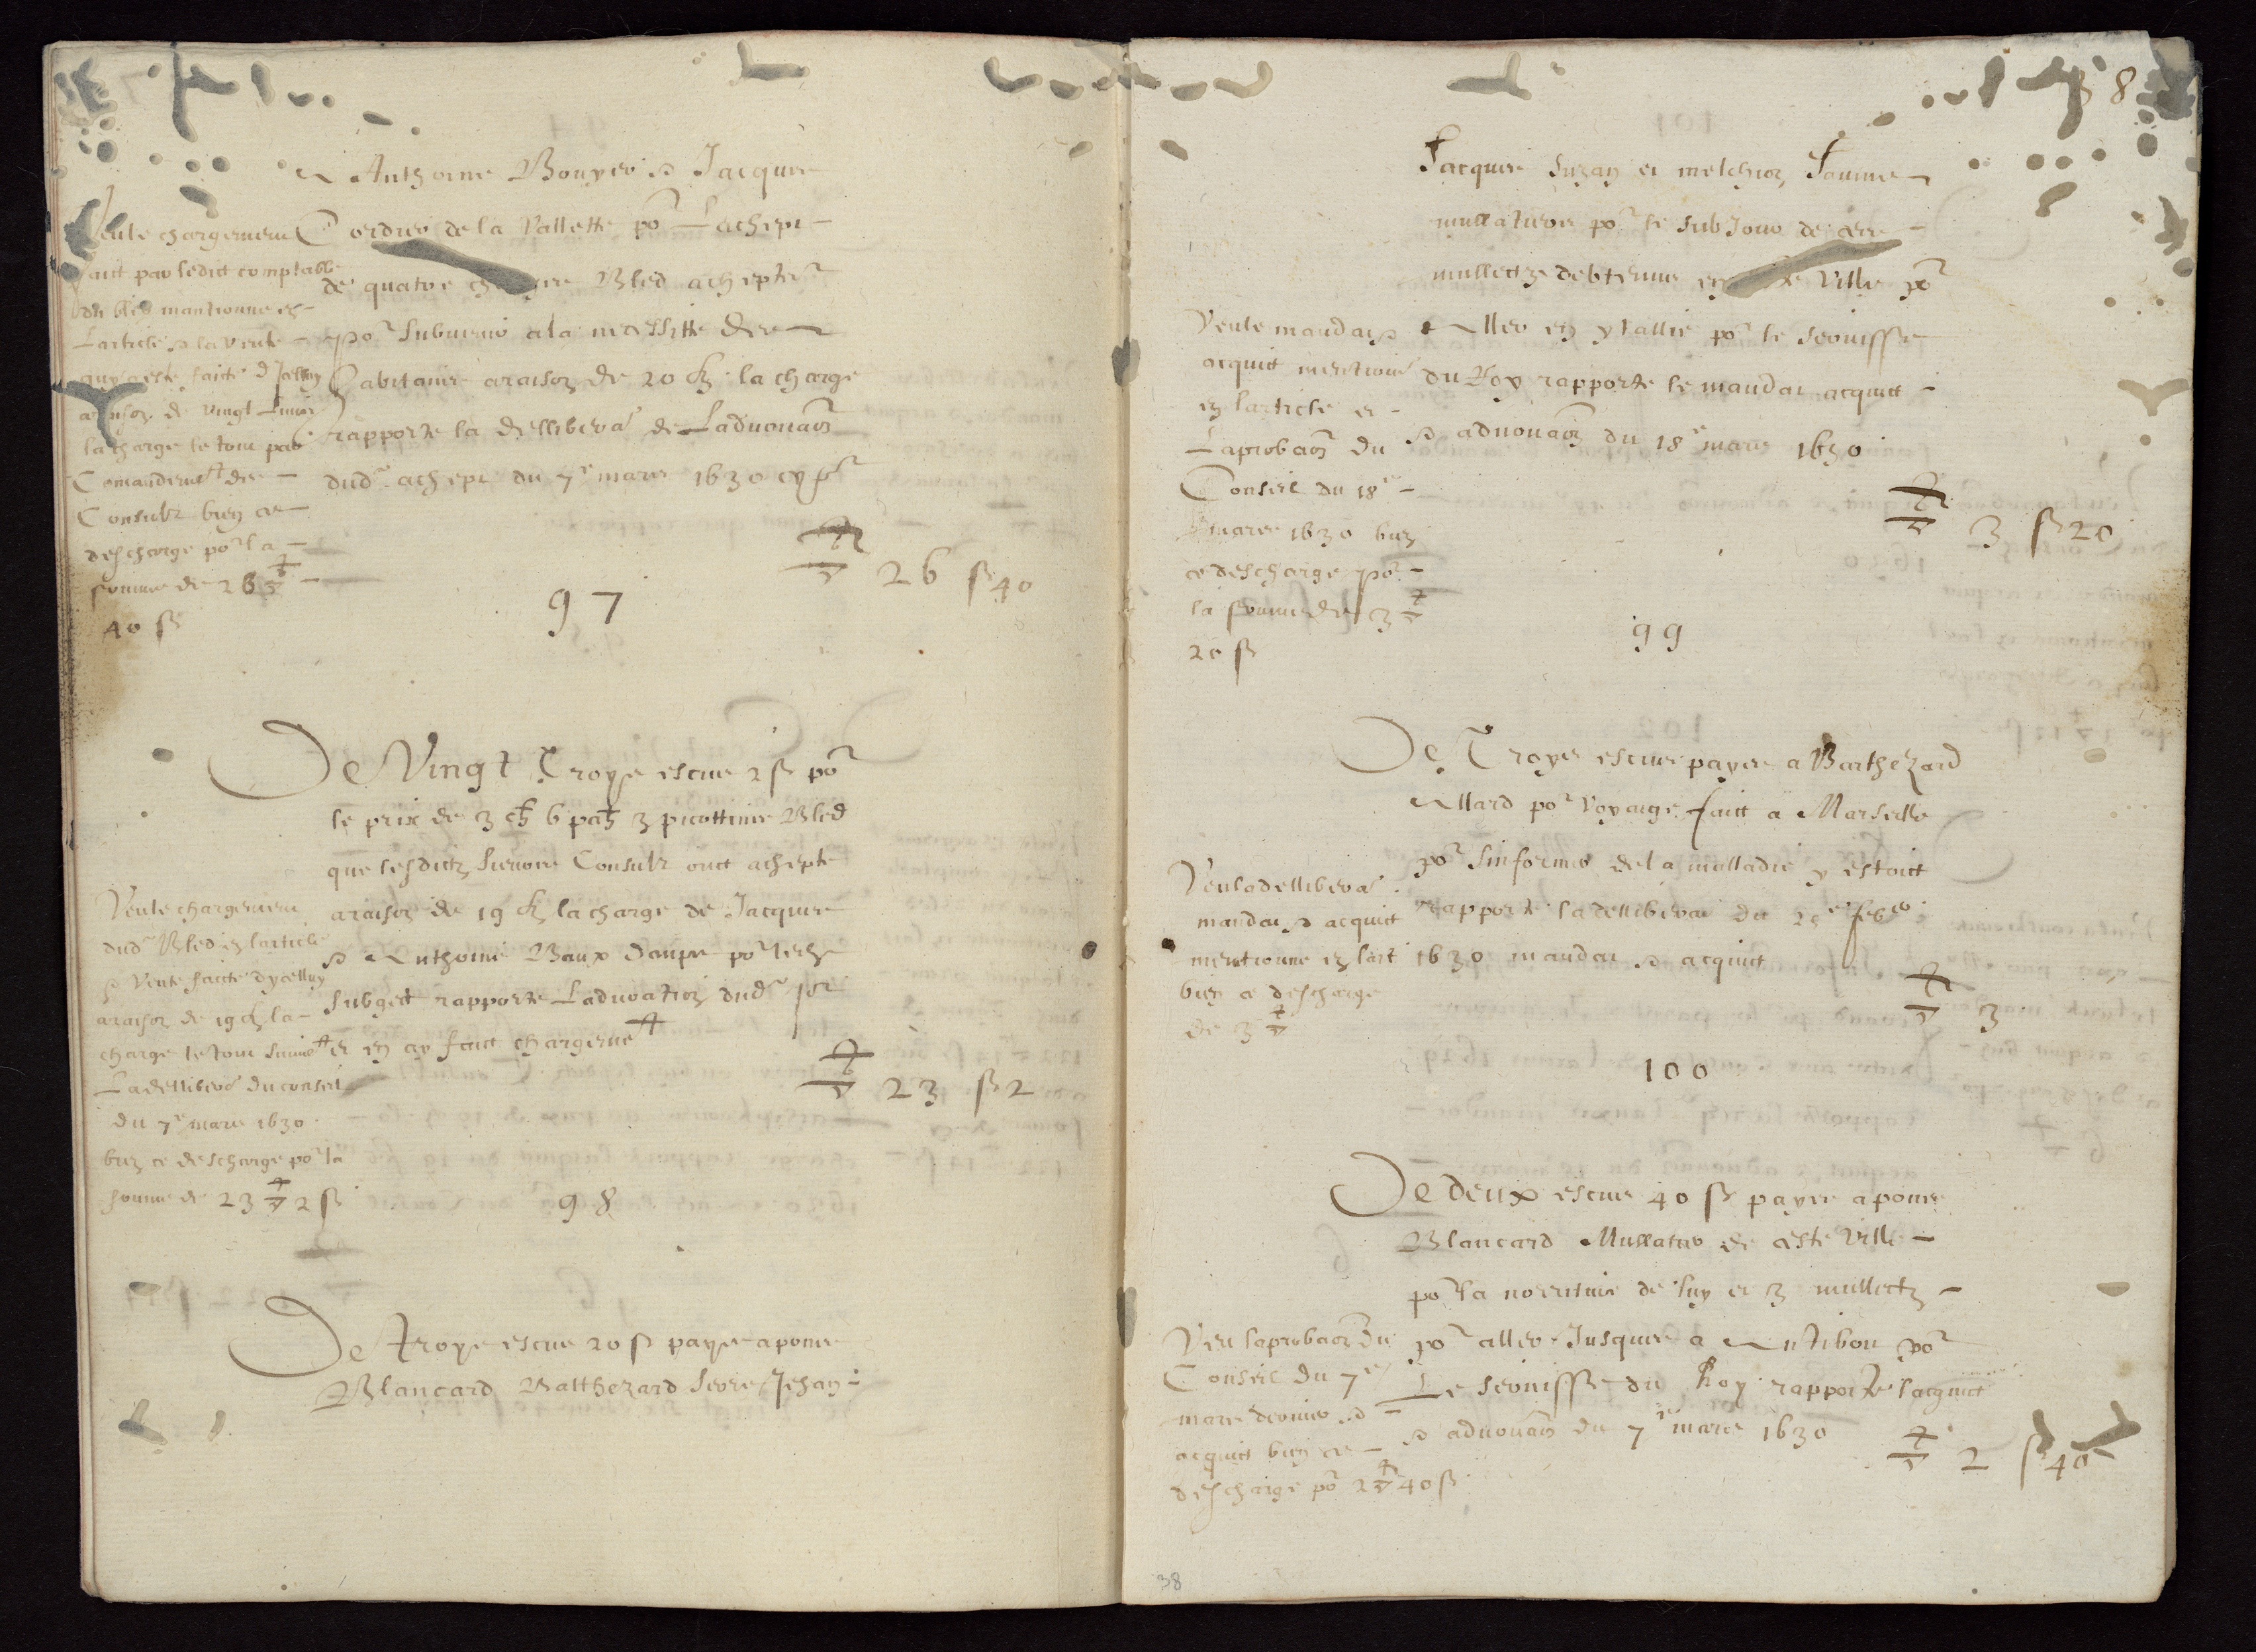 Anthoine Bouyer & Jacques
Cordier de la Vallette po^r Lachept
de quatre charges Bled achepte
po^r subvenir a la necessitte des
habitans a raison de 20 la charge
rapporte la dellibera^on de Ladvoua^on
dud^t achept du 7^e mars 1630 cy
26 ß 40
Veu le chargement
faict par ledict comptable
du bled mantionne en
Larticle & la vente
quy a este faicte d'Icelluy
a raison de vingt Livres
la charge le tout par
Comandem^t des
Consulz bien ce
descharge po^r la
somme de 26
40 ß
97
De Vingt Troys escus 2 ß po^r
le prix de 3 ch 6 pa^h 3 picottins Bled
que lesdictz sieurs Consulz ont achepte
a raison de 19 la charge de Jacques
& Anthoine Baux Daups po^r
subgect rapporte Ladvoation dud^t
et en ay faict chargem^t
23 ß 2
Veu le chargement
dud^t Bled en larticle
& Vente faicte dycelluy
a raison de 19 la
charge le tout suiv^t
La dellibera^on du conseil
du 7^e mars 1630
bien ce descharge po^r la
somme de 23 2 ß
98
De troys escus 20 ß payes a pons
Blancard Balthezard Jehan
38
Jacques Suzan et melchion Jaume
mullatiers po^r le subJour de ces
mulletz debtenus en Ville po^r
Aller en ytallie po^r le servisse
du Roy rapporte le mandat acquict
& advoua^on du 18^e mars 1630
3 ß 20
Veu le mandat &
acquict mentione
en larticle et
Laproba^on du
Conseil du 18^e
mars 1630 bien
ce descharge po^r
la somme de 3
20 ß
99
De Troyes escus payes a Barthezard
Allard po^r Voyaige faict a Marseille
po^r sinformer de la malladie y estoict
rapporte la dellibera^on du 25^e feb^er
1630 mandat & acquict
3
Veu la dellibera^on
mandat & acquict
mentionne en lart
bien ce descharge
de 3
100
De deux escus 40 ß payes a pons
Blancard Mullattier de ceste Ville
po^r la norriture de luy et 3 mulletz
po^r aller Jusques a Antibou po^r
Le servisse du Roy rapporte lacquict
& advoua^on du 7^e mars 1630
2 ß 40
Veu laproba^on du
Conseil du 7^e
mars dernier &
acquict bien ce
descharge po^r 2 40 ß
38